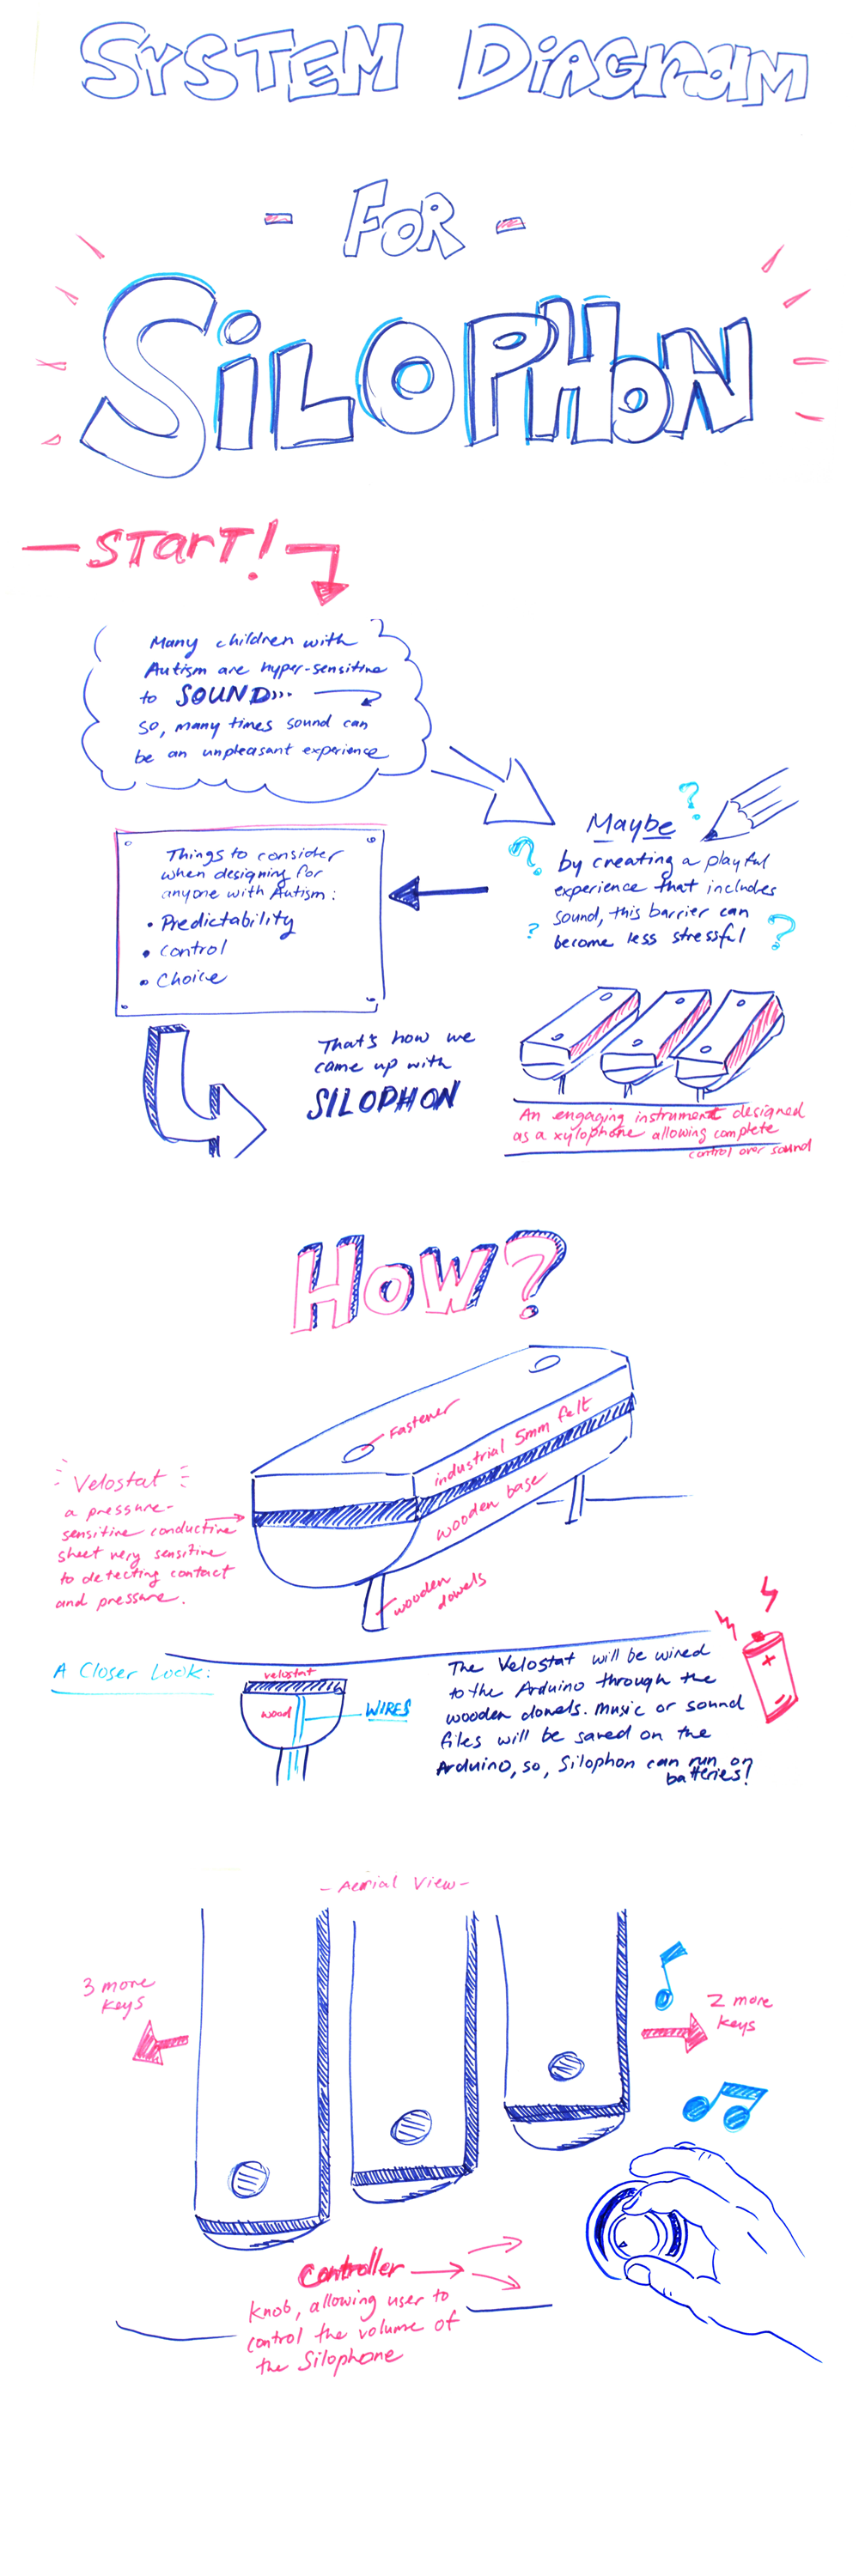 SYSTEM DIAGRAM
- FOR -
SILOPHON
START!
Many children with
Autism are hyper-sensitive
to SOUND...
so, many times sound can
be an unpleasant experience
Maybe
by creating a playful
experience that includes
sound, this barrier can
become less stressful
? ? ? ?
Things to consider
when designing for
anyone with Autism:
• Predictability
• control
• Choice
That's how we
came up with
SILOPHON
An engaging instrument designed
as a xylophone allowing complete
control over sound
How?
Fastener
industrial 5mm felt
wooden base
wooden
dowels
Velostat
a pressure-
sensitive conductive
sheet very sensitive
to detecting contact
and pressure.
A Closer Look:
velostat
wood
WIRES
The Velostat will be wired
to the Arduino through the
wooden dowels. Music or sound
files will be saved on the
Arduino, so, Silophon can run on
batteries!
+
-
- Aerial View -
3 more
keys
2 more
keys
Controller
knob, allowing user to
control the volume of
the Silophone